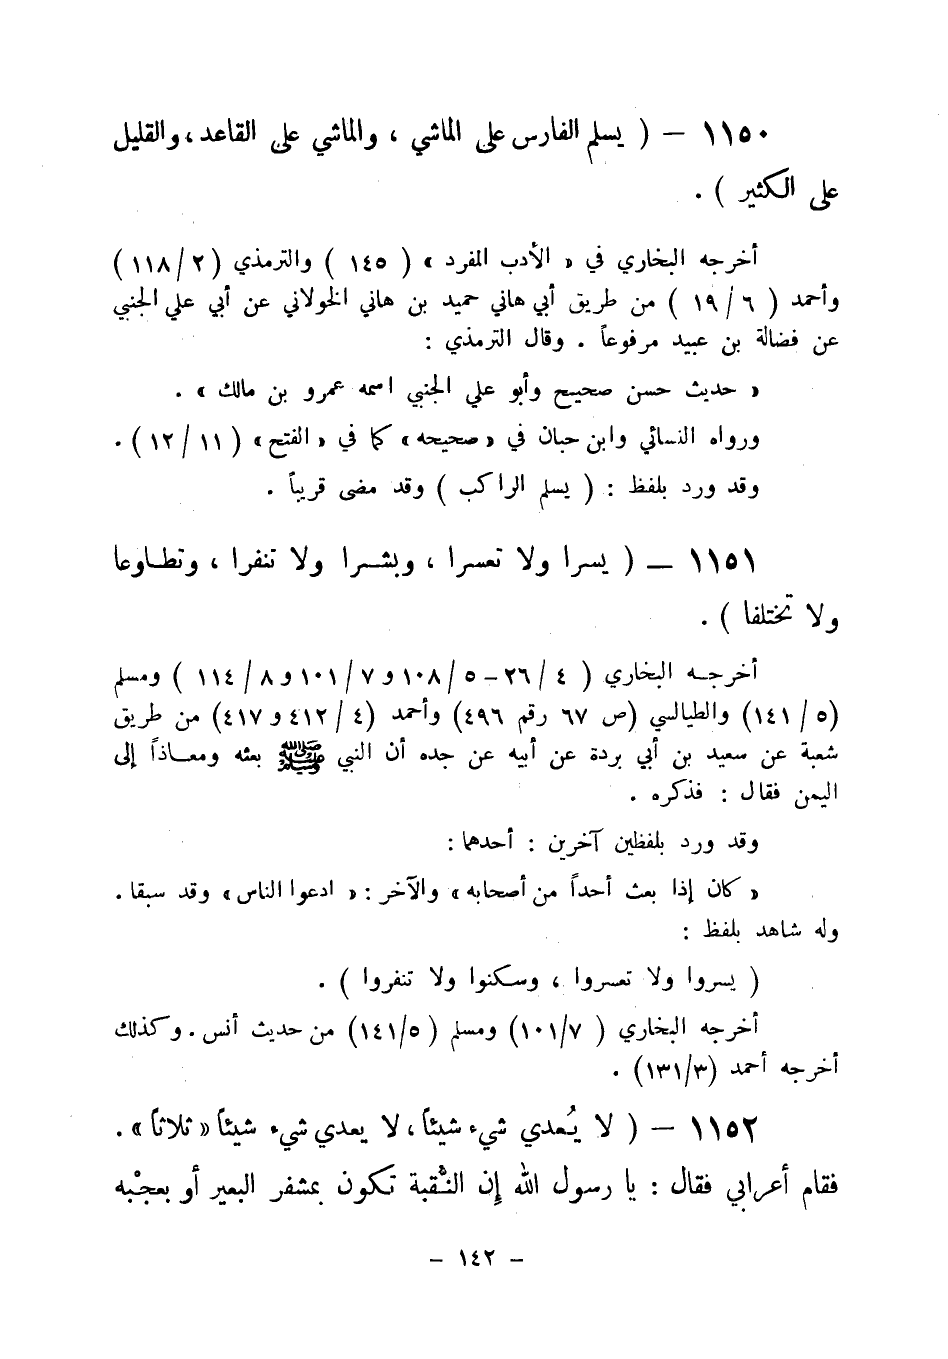 ١١٥٠ – ( يسلم الفارس على الماشي ، والماشي على القاعد ، والقليل
على الكثير ) .
أخرجه البخاري في « الأدب المفرد » ( ١٤٥ ) والترمذي ( ٢ / ١١٨ )
وأحمد ( ٦ / ١٩ ) من طريق أبي هاني حميد بن هاني الخولاني عن أبي علي الجنبي
عن فضالة بن عبيد مرفوعاً . وقال الترمذي :
« حديث حسن صحيح وأبو علي الجنبي اسمه عمرو بن مالك » .
ورواه النسائي وابن حبان في « صحيحه » كما في « الفتح » ( ١١ / ١٢ ) .
وقد ورد بلفظ : ( يسلم الراكب ) وقد مضى قريباً .
١١٥١ – ( يسرا ولا تعسرا ، وبشـرا ولا تنفرا ، وتطـاوعا
ولا تختلفا ) .
أخرجـه البخاري ( ٤ / ٢٦ – ٥ / ١٠٨ و ٧ / ١٠١ و ٨ / ١١٤ ) ومسلم
(٥ / ١٤١) والطيالسي (ص ٦٧ رقم ٤٩٦) وأحمد (٤ / ٤١٢ و ٤١٧) من طريق
شعبة عن سعيد بن أبي بردة عن أبيه عن جده أن النبي ﷺ بعثه ومعـاذاً إلى
اليمن فقال : فذكره .
وقد ورد بلفظين آخرين : أحدهما :
« كان إذا بعث أحداً من أصحابه » والآخر : « ادعوا الناس » وقد سبقا .
وله شاهد بلفظ :
( يسروا ولا تعسروا ، وسكنوا ولا تنفروا ) .
أخرجه البخاري ( ٧/ ١٠١) ومسلم ( ٥/ ١٤١) من حديث أنس . وكذلك
أخرجه أحمد (٣/ ١٣١) .
١١٥٢ – ( لا يُعدي شيء شيئاً ، لا يعدي شيء شيئاً « ثلاثاً » .
فقام أعرابي فقال : يا رسول الله إن النُّقبة تكون بمشفر البعير أو بعجْبه
– ١٤٢ –